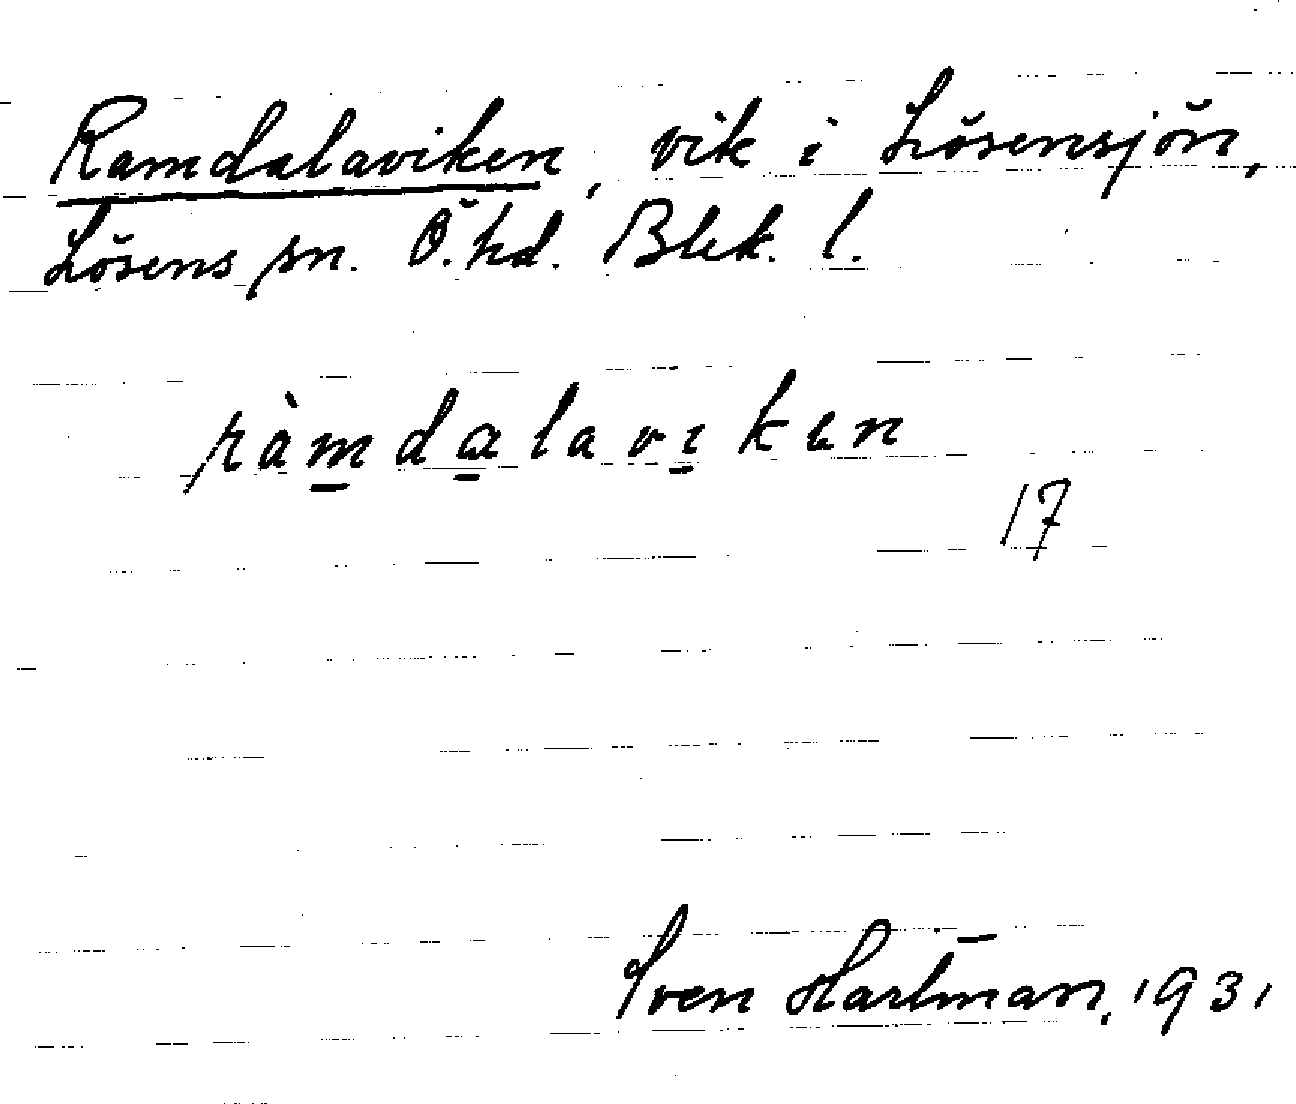 Ramdalaviken, vik i Lösensjön,
Lösens sn. Ö. hd. Blek. l.
ràmdalavıken
17
Sven Hartman, 1931